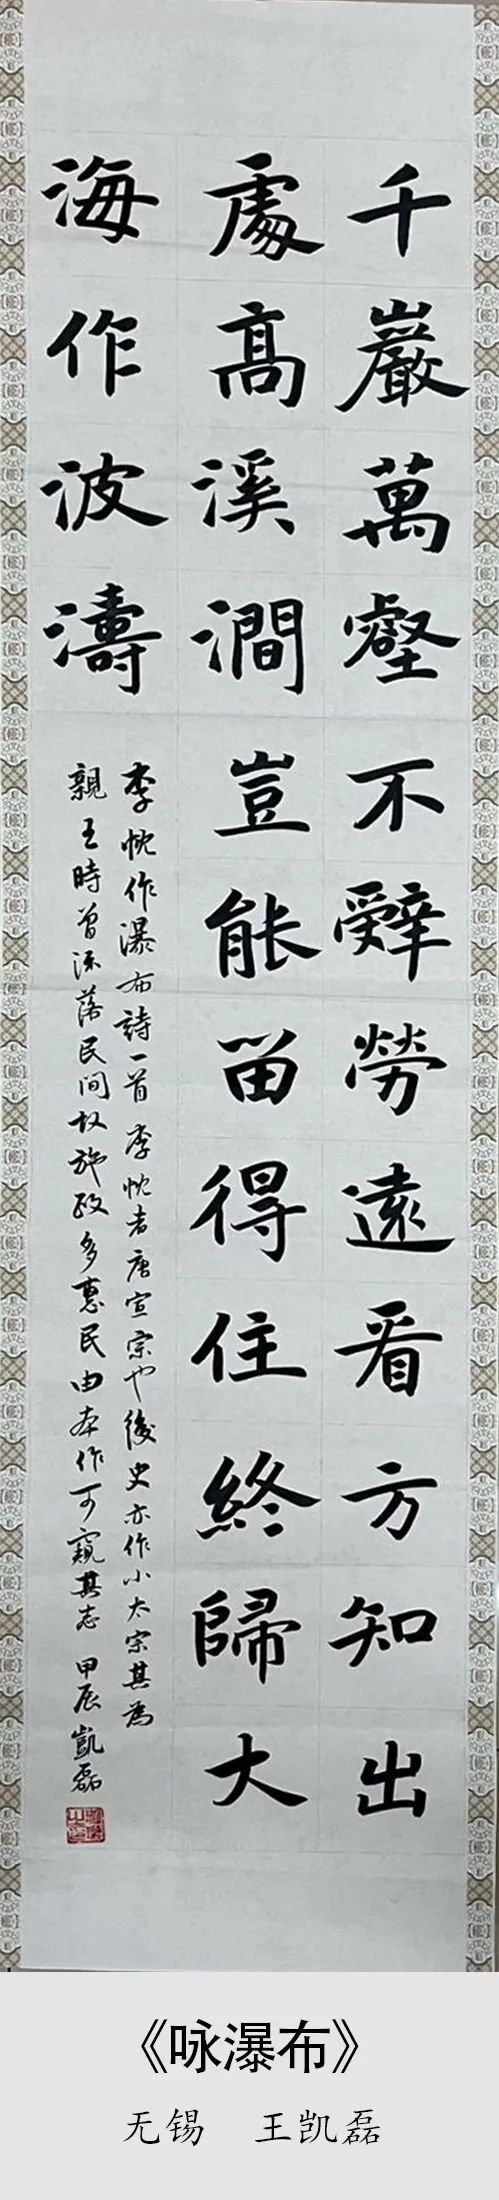 千巖萬壑不辭勞遠看方知出
處高溪澗豈能留得住終歸大
海作波濤
李忱作瀑布詩一首李忱者唐宣宗也後史亦作小太宗其為
親王時曾流落民间故施政多惠民由本作可窺其志 甲辰凱磊
《咏瀑布》
无锡 王凯磊